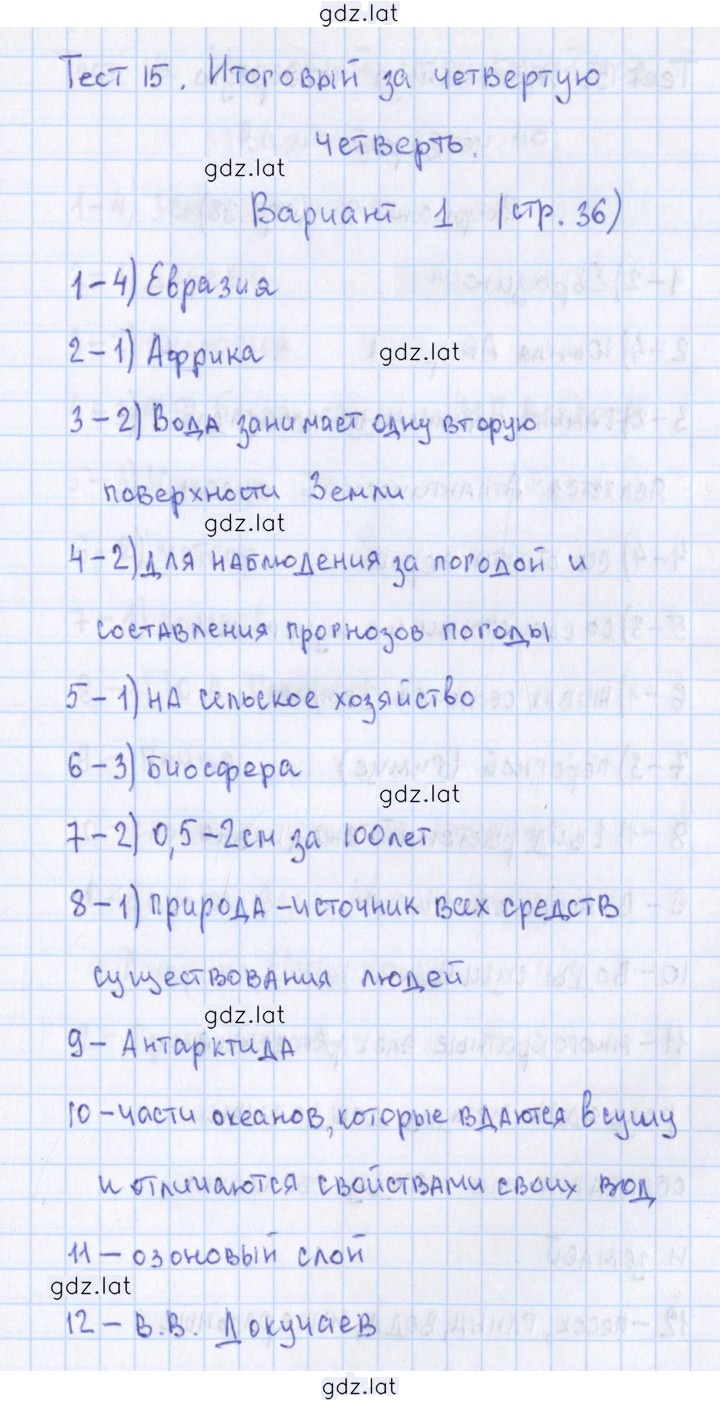 gdz.lat
Тест 15. Итоговый за четвертую
четверть.
gdz.lat
Вариант 1 (стр. 36)
1-4) Евразия
2-1) Африка
gdz.lat
3-2) Вода занимает одну вторую
поверхности Земли
gdz.lat
4-2) для наблюдения за погодой и
составления прогнозов погоды
5-1) на сельское хозяйство
6-3) Биосфера
gdz.lat
7-2) 0,5-2см за 100лет
8-1) природа-источник всех средств
существования людей
gdz.lat
9- Антарктида
10-части океанов, которые вдаются в сушу
и отличаются свойствами своих вод
11- озоновый слой
gdz.lat
12- В.В. Докучаев
gdz.lat